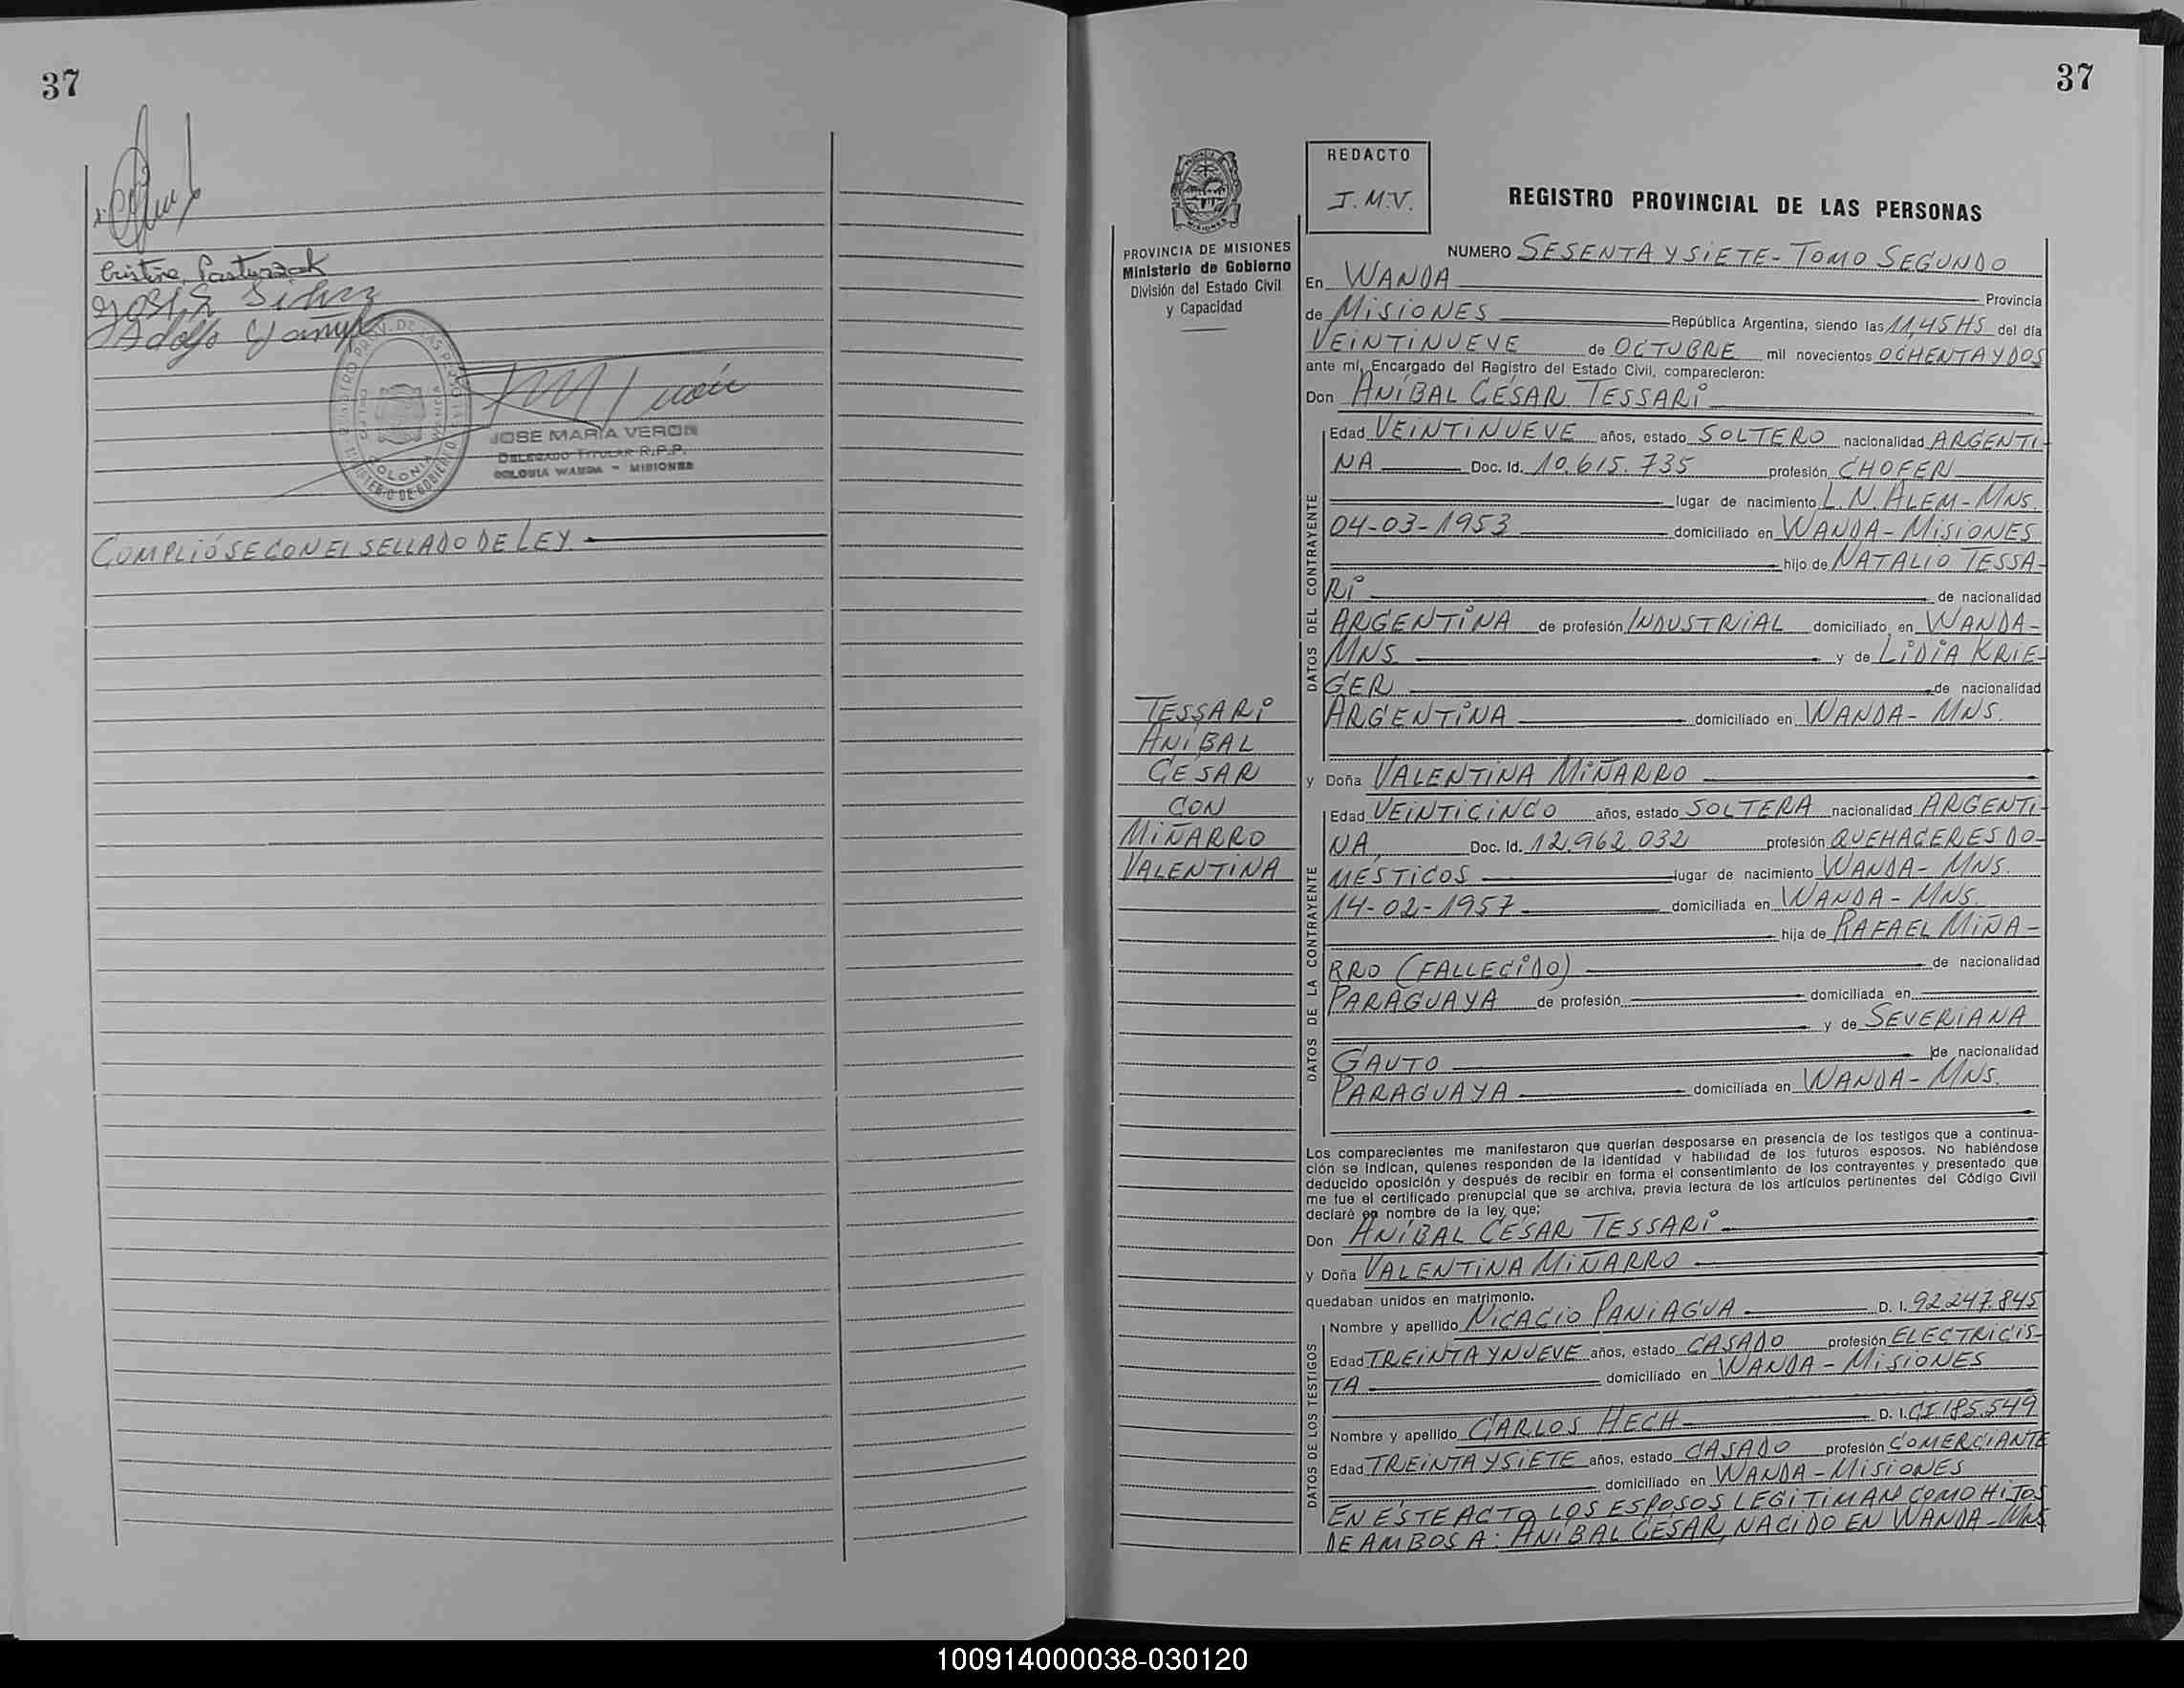 37
Cristina Pasturzak
Adolfo
JOSE MARIA VERON
DELEGADO TITULAR R.P.P.
COLONIA WANDA - MISIONES
CUMPLIÓSE CON EL SELLADO DE LEY.
37
REDACTO
J.M.V.
REGISTRO PROVINCIAL DE LAS PERSONAS
PROVINCIA DE MISIONES
Ministerio de Gobierno
División del Estado Civil
y Capacidad
NUMERO SESENTA Y SIETE - TOMO SEGUNDO
En WANDA Provincia
de MISIONES República Argentina, siendo las 11,45 HS del día
VEINTINUEVE de OCTUBRE mil novecientos OCHENTA Y DOS
ante mí, Encargado del Registro del Estado Civil, comparecieron:
Don ANÍBAL CÉSAR TESSARI
DATOS DEL CONTRAYENTE
Edad VEINTINUEVE años, estado SOLTERO nacionalidad ARGENTI-
NA Doc. Id. 10.615.735 profesión CHOFER
lugar de nacimiento L.N. ALEM - MNS.
04-03-1953 domiciliado en WANDA - MISIONES
hijo de NATALIO TESSA-
RI de nacionalidad
ARGENTINA de profesión INDUSTRIAL domiciliado en WANDA -
MNS. y de LIDIA KRIE-
GER de nacionalidad
ARGENTINA domiciliado en WANDA - MNS.
TESSARI
ANÍBAL
CÉSAR
CON
MIÑARRO
VALENTINA
y Doña VALENTINA MIÑARRO
DATOS DE LA CONTRAYENTE
Edad VEINTICINCO años, estado SOLTERA nacionalidad ARGENTI-
NA, Doc. Id. 12.962.032 profesión QUEHACERES DO-
MÉSTICOS lugar de nacimiento WANDA - MNS.
14-02-1957 domiciliada en WANDA - MNS.
hija de RAFAEL MIÑA-
RRO (FALLECIDO) de nacionalidad
PARAGUAYA de profesión domiciliada en
y de SEVERIANA
GAUTO de nacionalidad
PARAGUAYA domiciliada en WANDA - MNS.
Los comparecientes me manifestaron que querían desposarse en presencia de los testigos que a continua-
ción se indican, quienes responden de la identidad y habilidad de los futuros esposos. No habiéndose
deducido oposición y después de recibir en forma el consentimiento de los contrayentes y presentado que
me fue el certificado prenupcial que se archiva, previa lectura de los artículos pertinentes del Código Civil
declaré en nombre de la ley, que:
Don ANÍBAL CÉSAR TESSARI
y Doña VALENTINA MIÑARRO
quedaban unidos en matrimonio.
DATOS DE LOS TESTIGOS
Nombre y apellido NICACIO PANIAGUA D. I. 92.247.845
Edad TREINTA Y NUEVE años, estado CASADO profesión ELECTRICIS-
TA domiciliado en WANDA - MISIONES
Nombre y apellido CARLOS HECH D. I. CI 185.549
Edad TREINTA Y SIETE años, estado CASADO profesión COMERCIANTE
domiciliado en WANDA - MISIONES
EN ÉSTE ACTO LOS ESPOSOS LEGITIMAN COMO HIJOS
DE AMBOS A: ANÍBAL CÉSAR, NACIDO EN WANDA - MNS
100914000038-030120